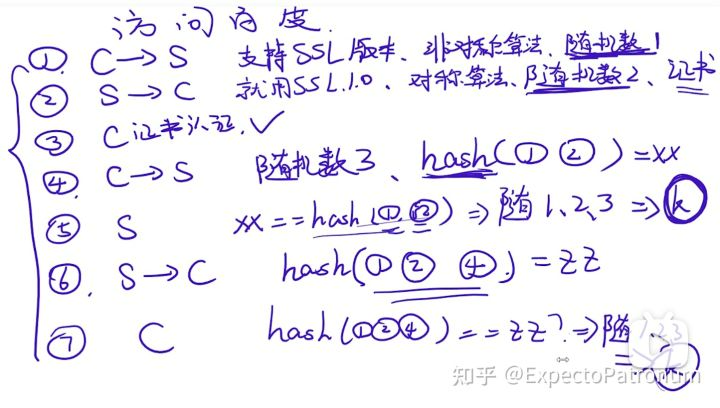 访问百度.
① C→S 支持SSL版本、非对称算法、随机数1
② S→C 就用SSL1.0、对称算法、随机数2、证书
③ C证书认证.✓
④ C→S 随机数3、hash(①②)=xx
⑤ S xx==hash(①.②)⇒随1、2、3⇒k
⑥. S→C hash(①②④)=zz
⑦ C hash(①②④)==zz?⇒随123
=
知乎 @ExpectoPatronum